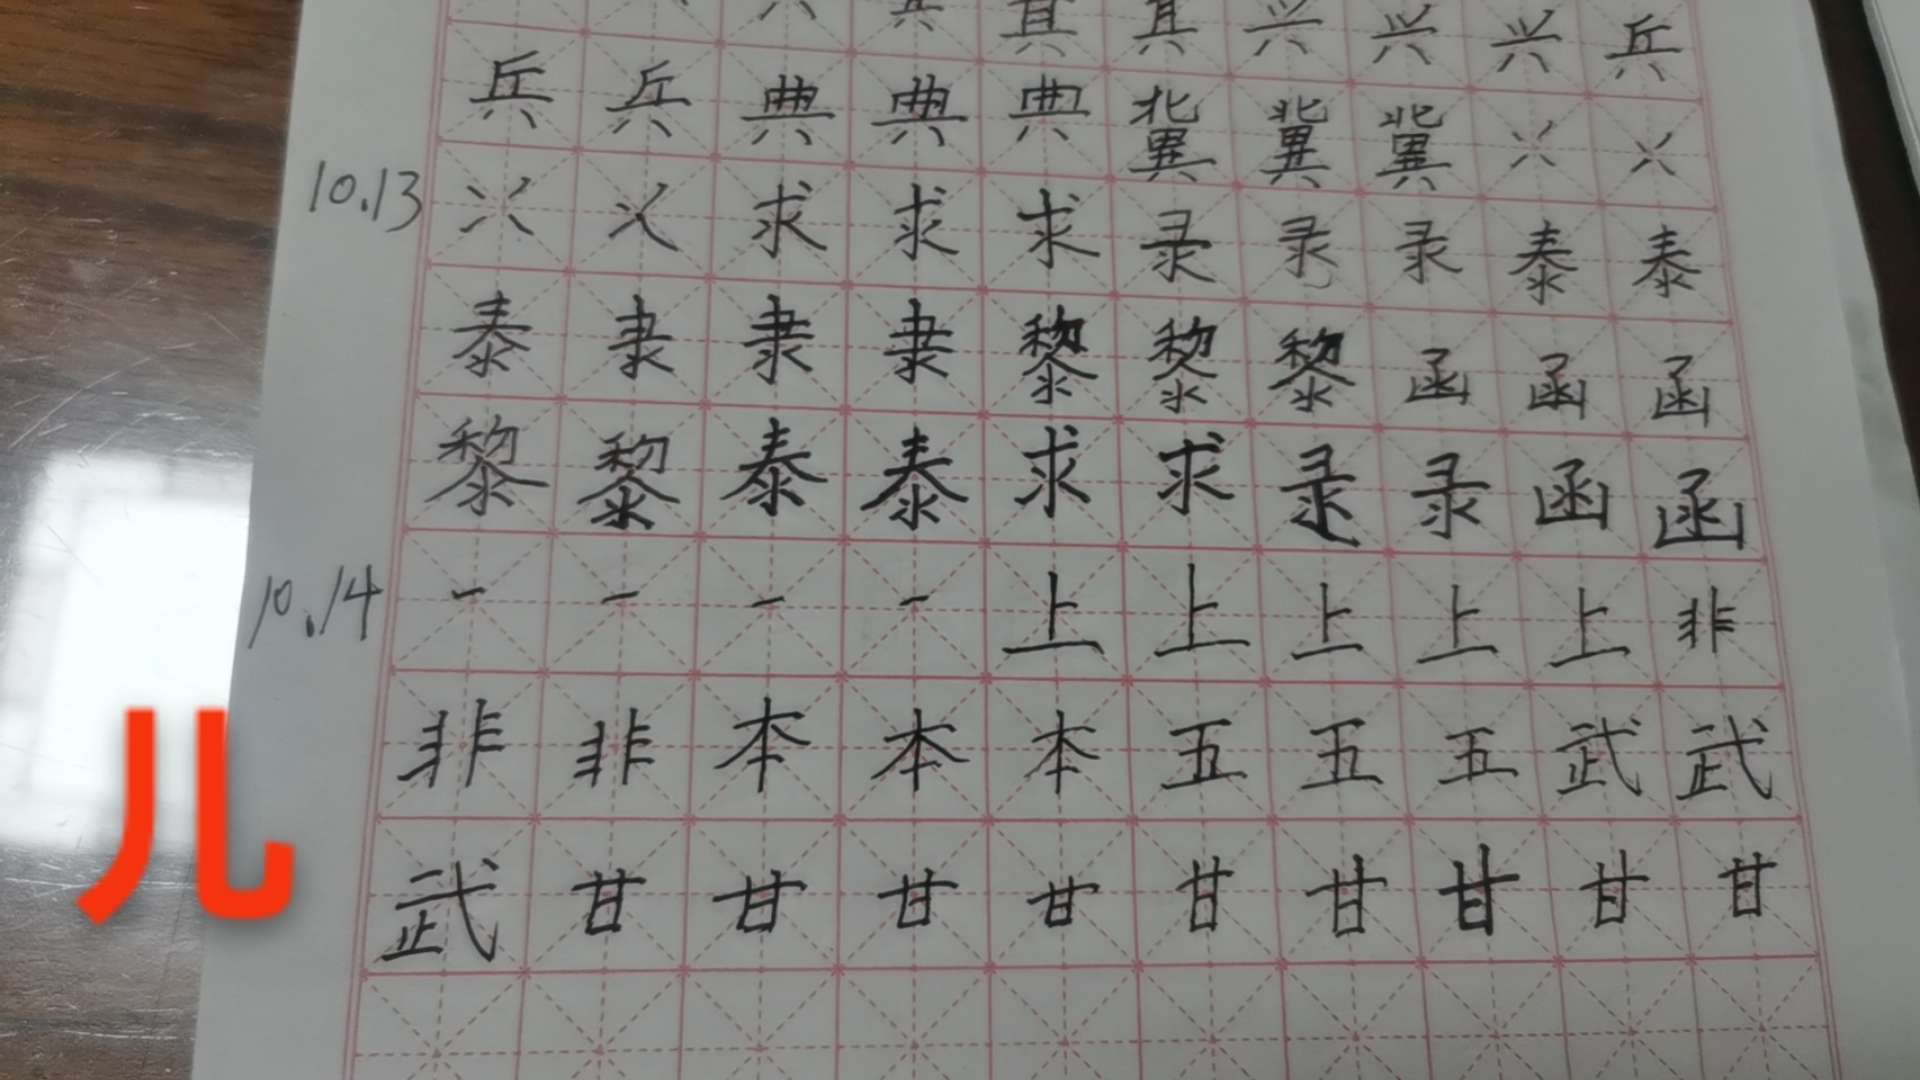 其 其 兴 兴 兴 兵
兵 兵 典 典 典 冀 冀 冀
10.13 求 求 求 录 录 录 泰 泰
泰 隶 隶 隶 黎 黎 黎 函 函 函
黎 黎 泰 泰 求 求 录 录 函 函
10.14 一 一 一 一 上 上 上 上 上 非
非 非 本 本 本 五 五 五 武 武
武 甘 甘 甘 甘 甘 甘 甘 甘 甘
儿